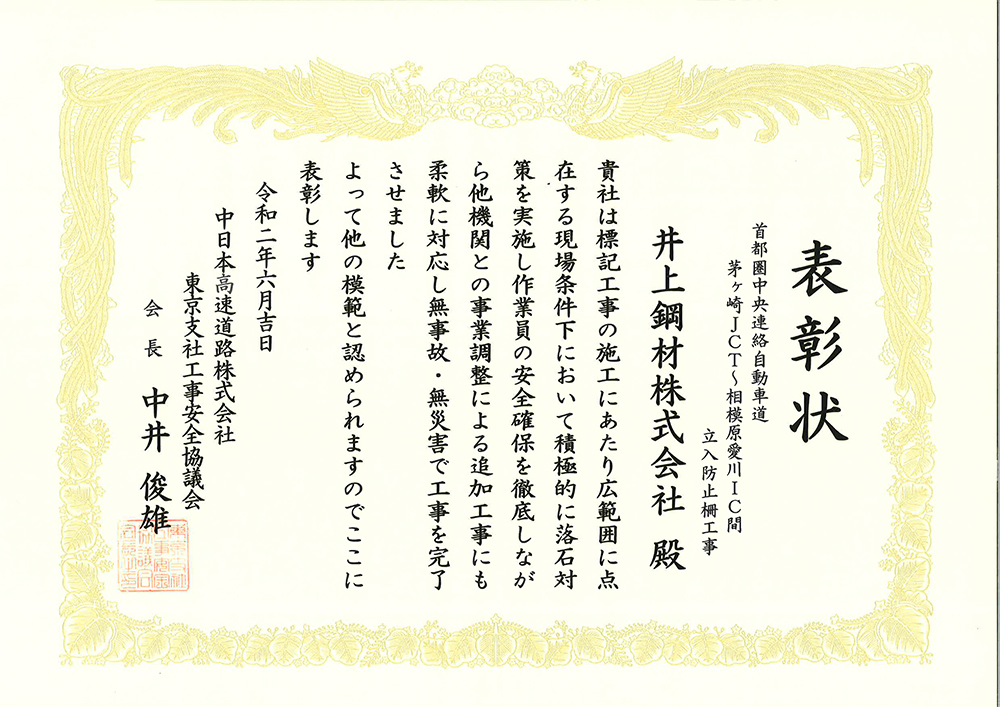 表彰状
首都圏中央連絡自動車道
茅ヶ崎JCT～相模原愛川IC間
立入防止柵工事
井上鋼材株式会社 殿
貴社は標記工事の施工にあたり広範囲に点
在する現場条件下において積極的に落石対
策を実施し作業員の安全確保を徹底しなが
ら他機関との事業調整による追加工事にも
柔軟に対応し無事故・無災害で工事を完了
させました
よって他の模範と認められますのでここに
表彰します
令和二年六月吉日
中日本高速道路株式会社
東京支社工事安全協議会
会長 中井 俊雄